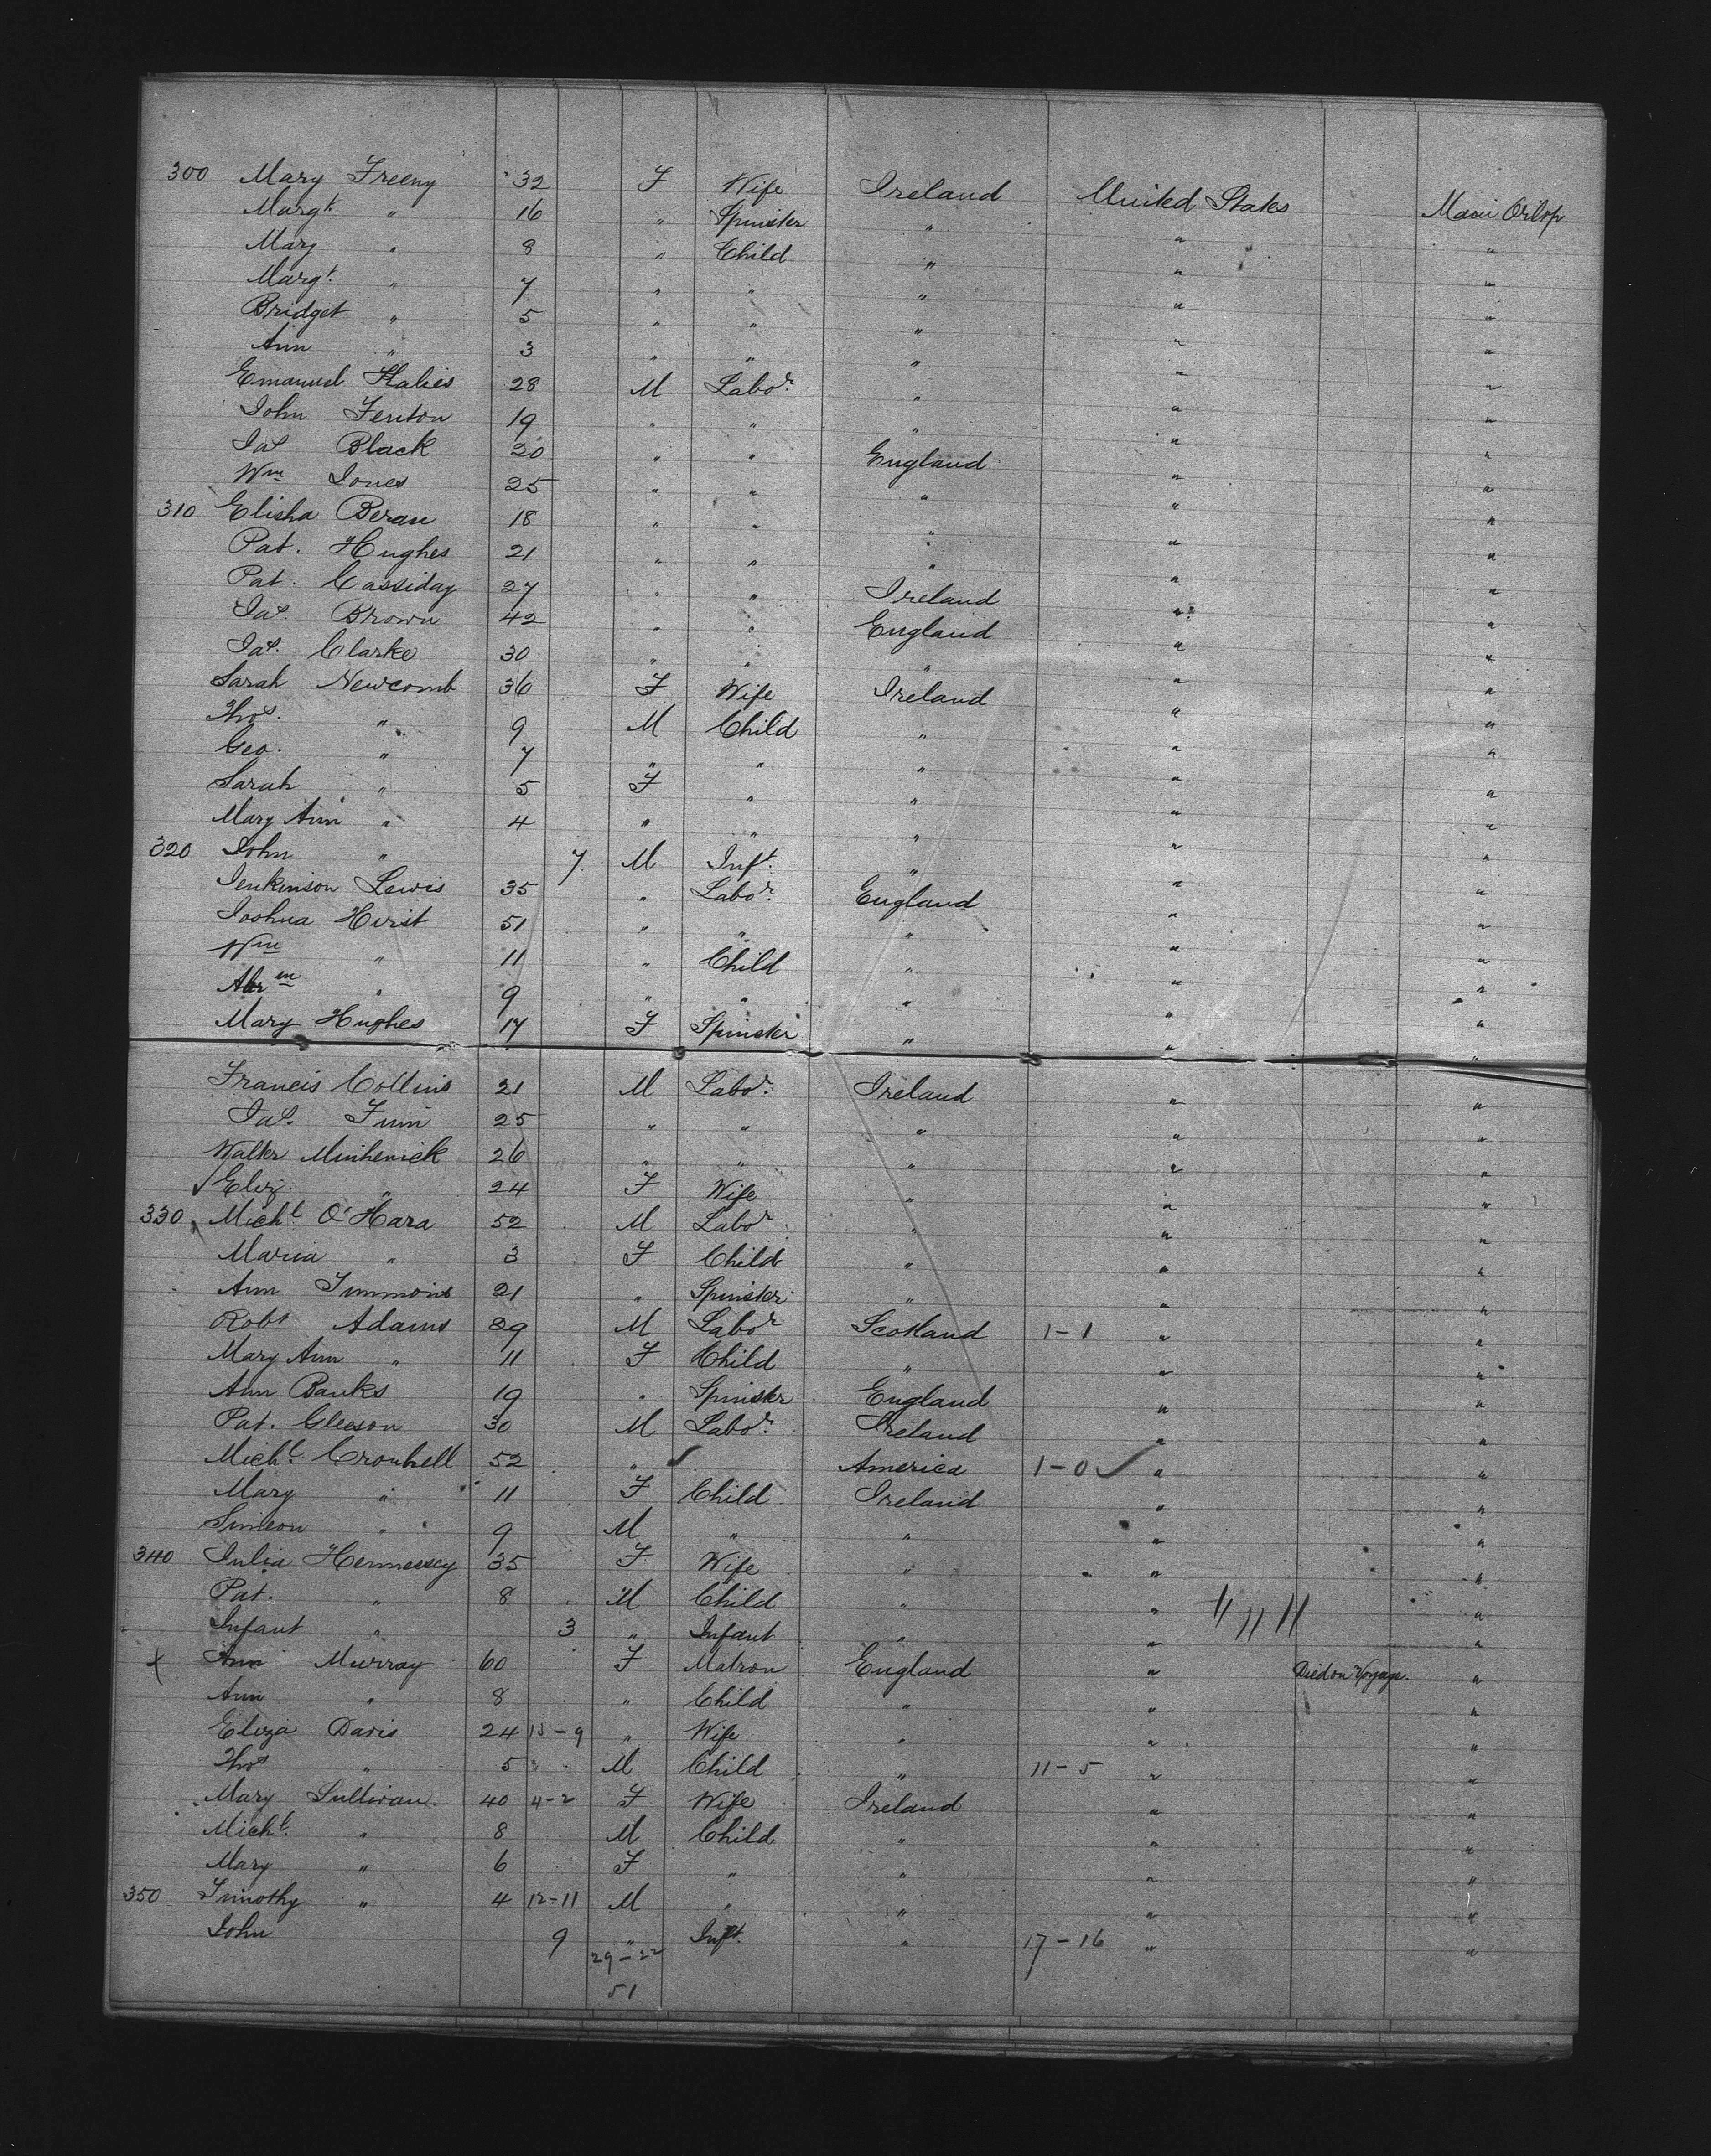 300 Mary Freeny 32 F Wife Ireland United States Main Orlop
Margt. " 16 " Spinster " " "
Mary " 8 " Child " " "
Margt. " 7 " " " " "
Bridget " 5 " " " " "
Ann " 3 " " " " "
Emanuel 28 M Labor. " " "
John Fenton 19 " " " " "
Jas Black 20 " " England " "
Wm Jones 25 " " " " "
310 Elisha Beran 18 " " " " "
Pat. Hughes 21 " " " " "
Pat. Cassiday 27 " " Ireland " "
Jas. Brown 42 " " England " "
Jas. Clarke 30 " " " " "
Sarah Newcomb 36 F Wife Ireland " "
Thos. " 9 M Child " " "
Geo. " 7 " " " " "
Sarah " 5 F " " " "
Mary Ann " 4 " " " " "
320 John " 7 M Inft. " " "
Jenkinson Lewis 35 " Labor. England " "
Joshua Hirst 51 " " " " "
Wm " 11 " Child " " "
Abrm " 9 " " " " "
Mary Hughes 17 F Spinster " " "
Francis Collins 21 M Labor. Ireland " "
Jas. Finn 25 " " " " "
Walter Minhenick 26 " " " " "
Eliz. " 24 F Wife " " "
330 Michl O'Hara 52 M Labor. " " "
Maria " 3 F Child " " "
Ann Timmons 21 " Spinster " " "
Robt Adams 29 M Labor Scotland 1-1 " "
Mary Ann " 11 F Child " " "
Ann Banks 19 " Spinster England " "
Pat. Gleeson 30 M Labor. Ireland " "
Michl. 52 " America 1-0 ✓ " "
Mary " 11 F Child Ireland " "
Simeon " 9 M " " " "
340 Julia Hennessey 35 F Wife " " "
Pat. " 8 M Child " " "
Infant " 3 " Infant " " "
x Ann Murray 60 F Matron England " Died on Voyage. "
Ann " 8 " Child " " "
Eliza Davis 24 15-9 " Wife " " "
Thos " 5 M Child " 11-5 " "
Mary Sullivan 40 4-2 F Wife Ireland " "
Michl. " 8 M Child " " "
Mary " 6 F " " " "
350 Timothy " 4 12-11 M " " " "
John 9 " Inft. " 17-16 " "
29-22
51